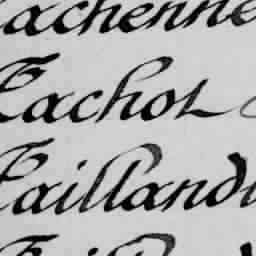 Tachenne
Tachot
Taillandi